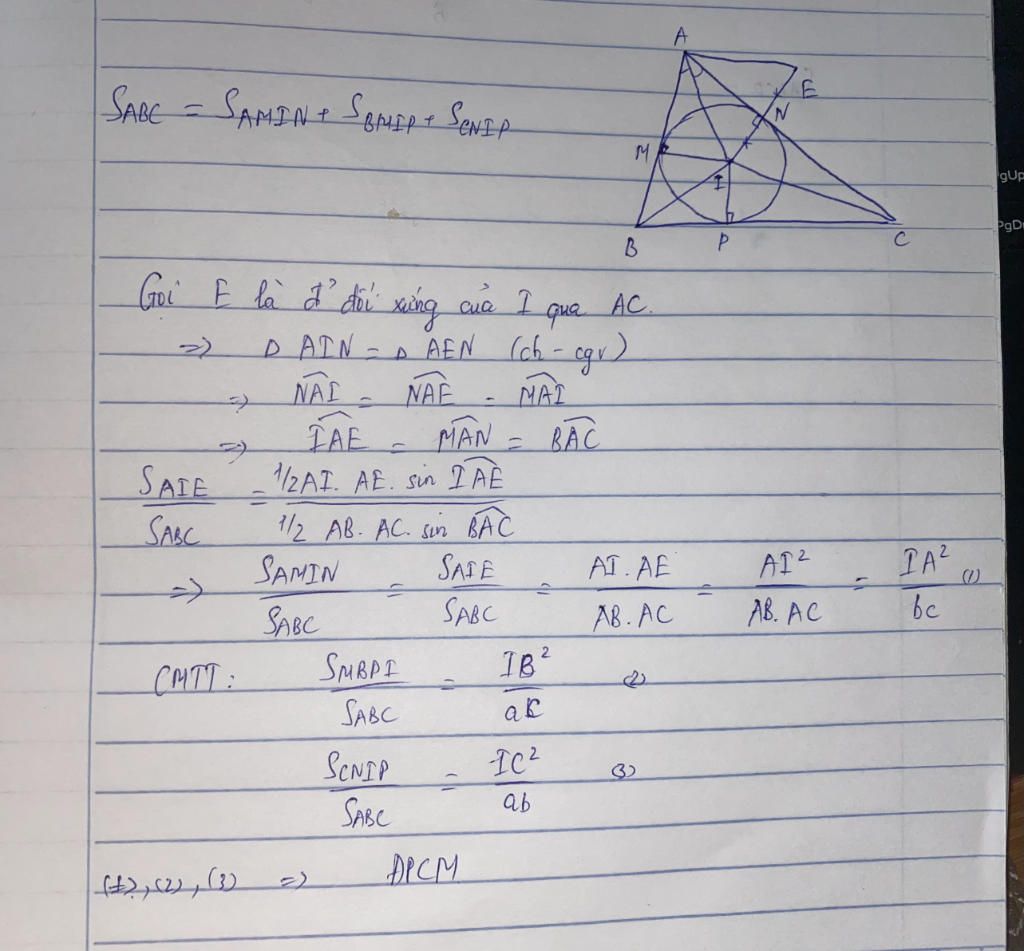 S_ABC = S_AMIN + S_BMIP + S_CNIP
A
E
N
M
I
B P C
gUp
PgD
Gọi E là đ' đối xứng của I qua AC.
=> Δ AIN = Δ AEN (ch - cgv)
=> \widehat{NAI} = \widehat{NAE} = \widehat{MAI}
=> \widehat{IAE} = \widehat{MAN} = \widehat{BAC}
\frac{S_AIE}{S_ABC} = \frac{1/2 AI. AE. sin \widehat{IAE}}{1/2 AB. AC. sin \widehat{BAC}}
=> \frac{S_AMIN}{S_ABC} = \frac{S_AIE}{S_ABC} = \frac{AI. AE}{AB. AC} = \frac{AI^2}{AB. AC} = \frac{IA^2}{bc} (1)
CMTT: \frac{S_MBPI}{S_ABC} = \frac{IB^2}{ac} (2)
\frac{S_CNIP}{S_ABC} = \frac{IC^2}{ab} (3)
(1), (2), (3) => ĐPCM